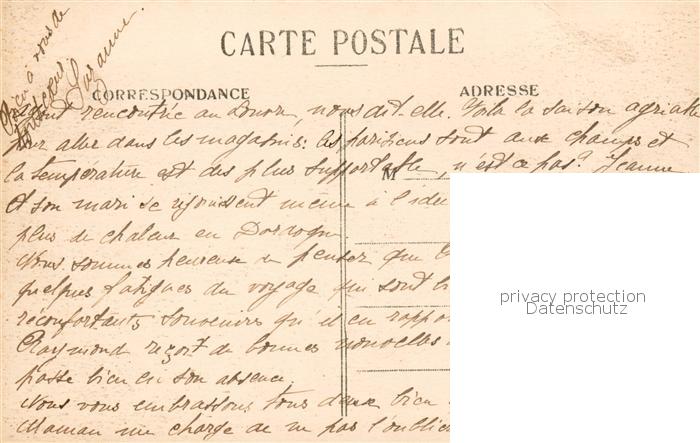 CARTE POSTALE
CORRESPONDANCE
ADRESSE
Bien à vous de
tout cœur
Suzanne.
rencontrée au Louvre, nous dit-elle. Voilà la saison agréable
pour aller dans les magasins: les parisiens sont aux champs et
la température est des plus supportable, n'est ce pas? Jeanne
M
et son mari se réjouissent même à l'idée
plus de chaleur en Dordogne.
Nous sommes heureuse de penser que
quelques fatigues du voyage qui sont bi
réconfortants souvenirs qu'il en rappo
Raymond reçoit de bonnes nouvelles
passe bien en son absence.
Nous vous embrassons tous deux bien
Maman me charge de ne pas l'oublie
privacy protection
Datenschutz